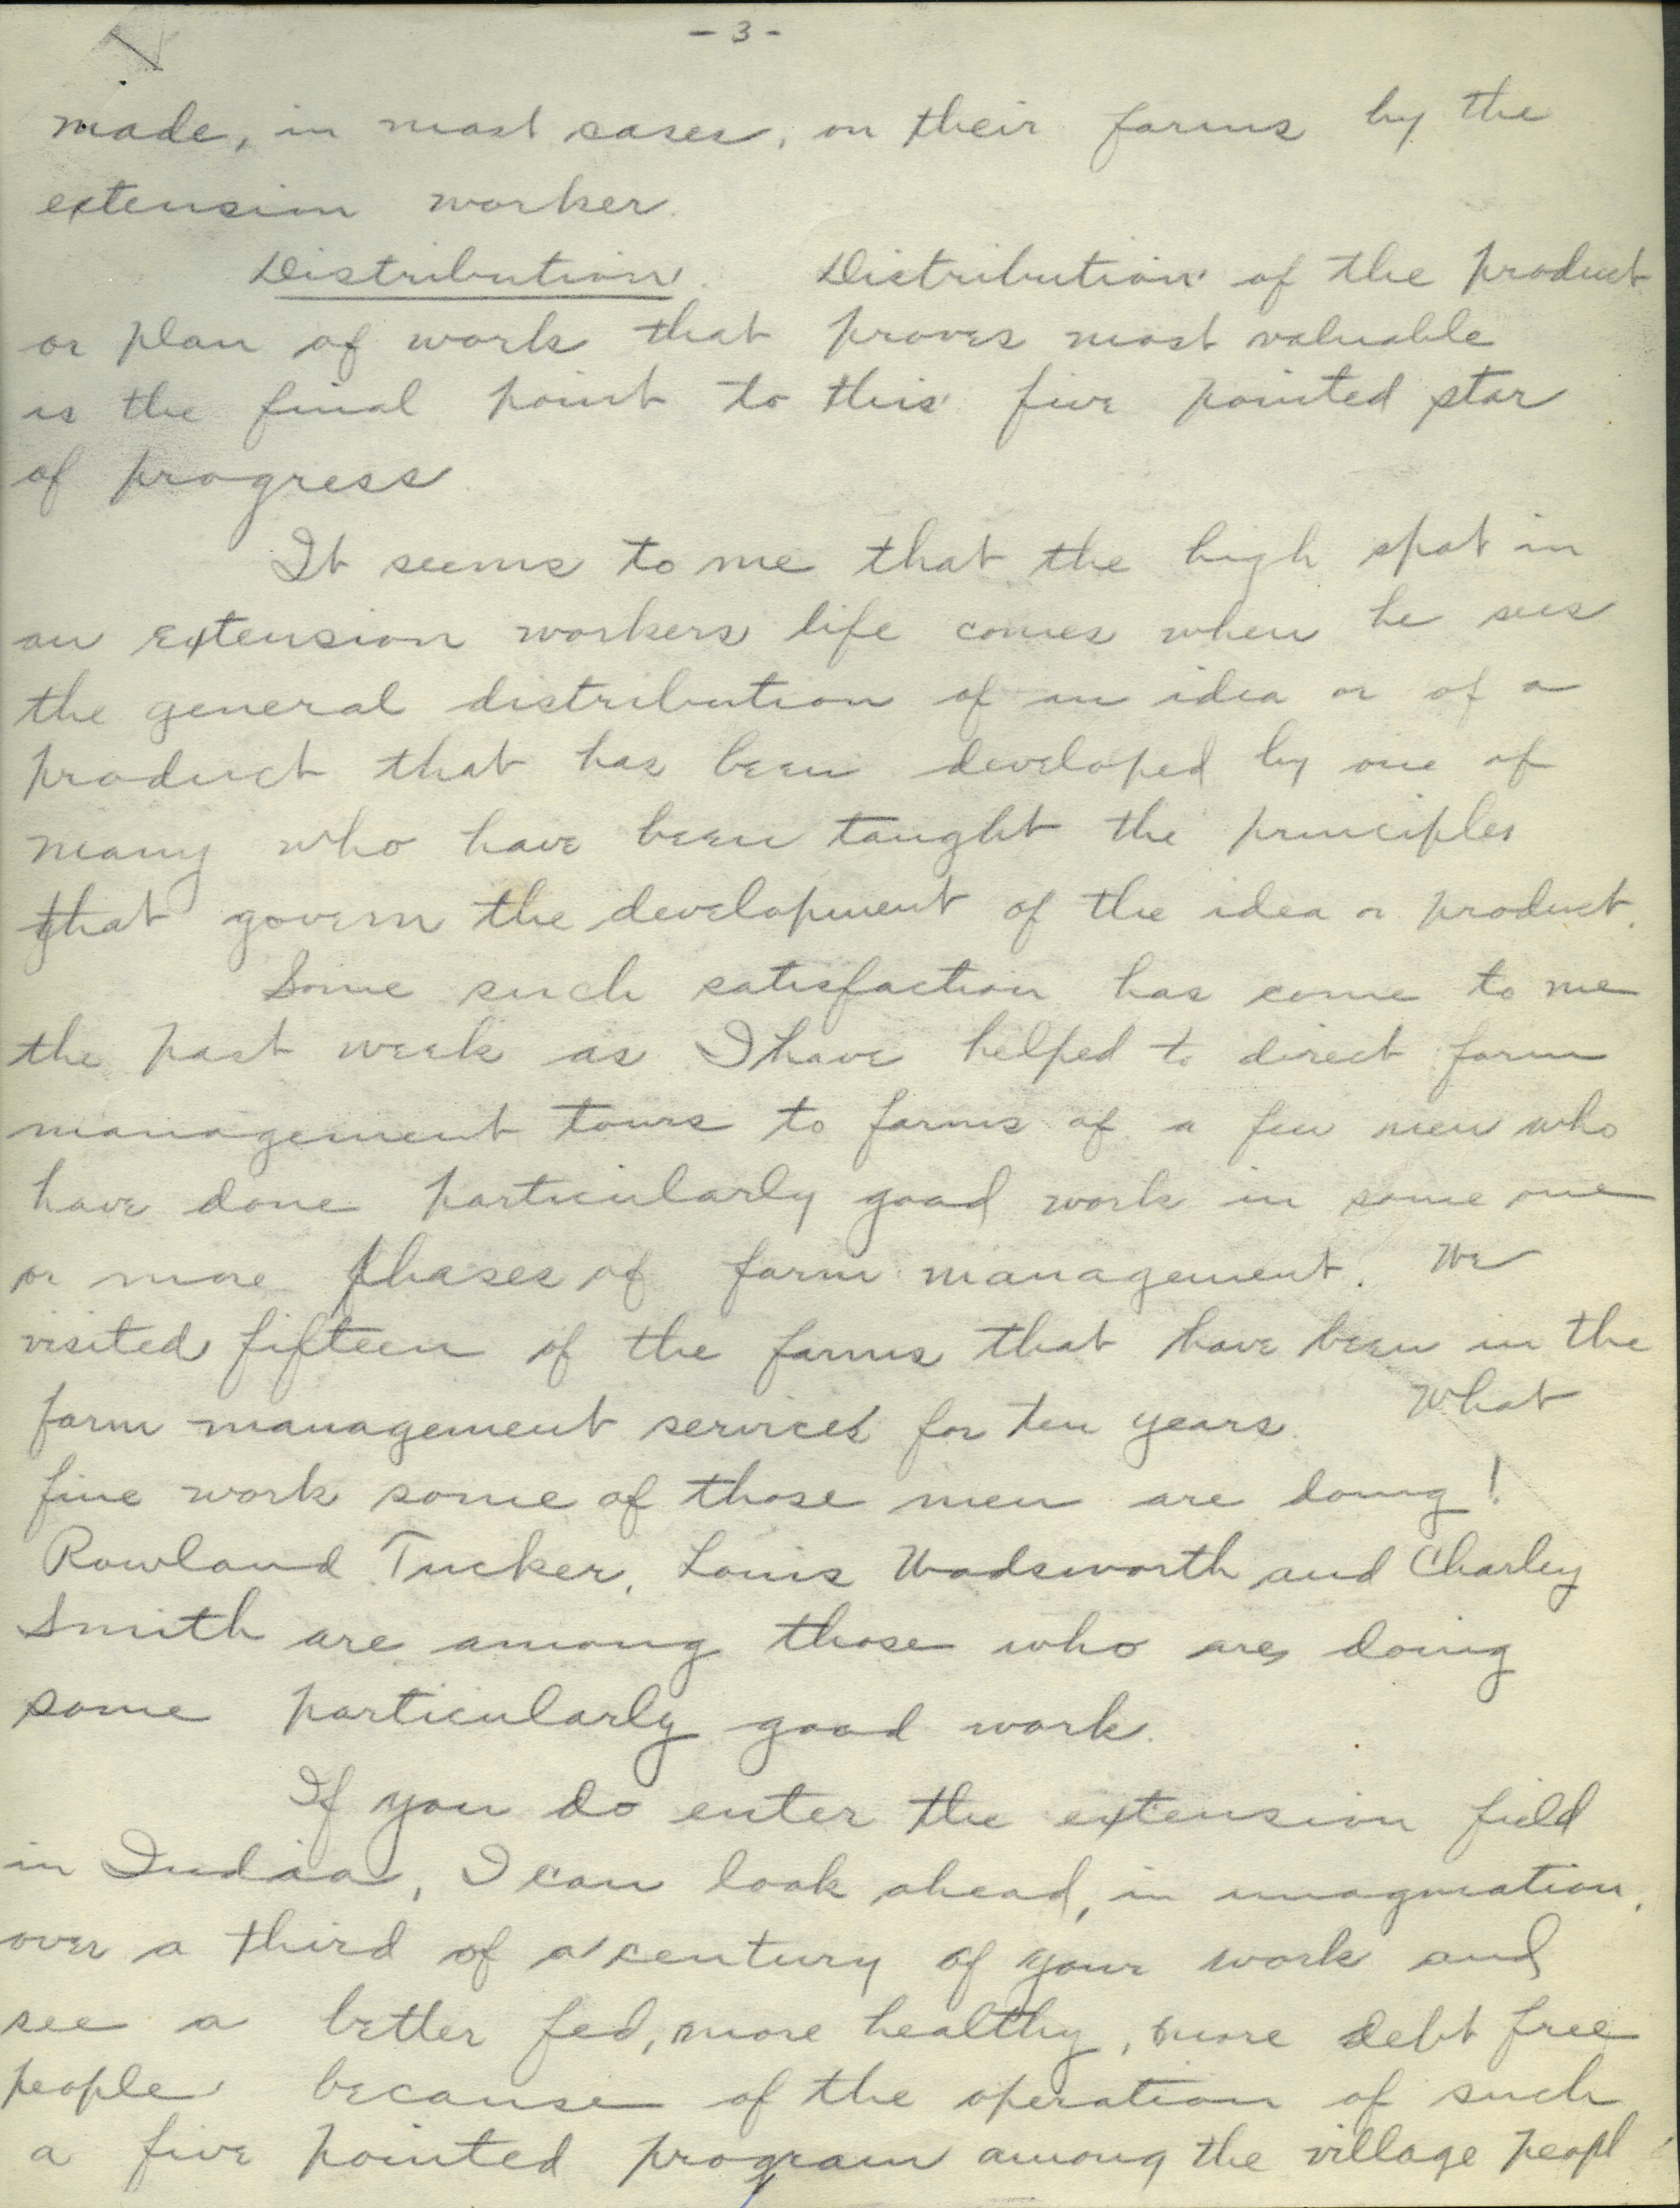 - 3 -
made, in most cases, on their farms by the
extension worker.
Distribution. Distribution of the product
or plan of work that proves most valuable
is the final point to this five pointed star
of progress
It seems to me that the high spot in
an extension workers life comes when he sees
the general distribution of an idea or of a
product that has been developed by one of
many who have been taught the principles
that govern the development of the idea or product.
Some such satisfaction has come to me
the past week as I have helped to direct farm
management tours to farms of a few men who
have done particularly good work in some one
or more phases of farm management. We
visited fifteen of the farms that have been in the
farm management services for ten years. What
fine work some of those men are doing!
Rowland Tucker, Louis Wadsworth and Charley
Smith are among those who are doing
some particularly good work.
If you do enter the extension field
in India, I can look ahead, in imagination,
over a third of a century of your work and
see a better fed, more healthy, more debt free
people because of the operation of such
a five pointed program among the village peopl